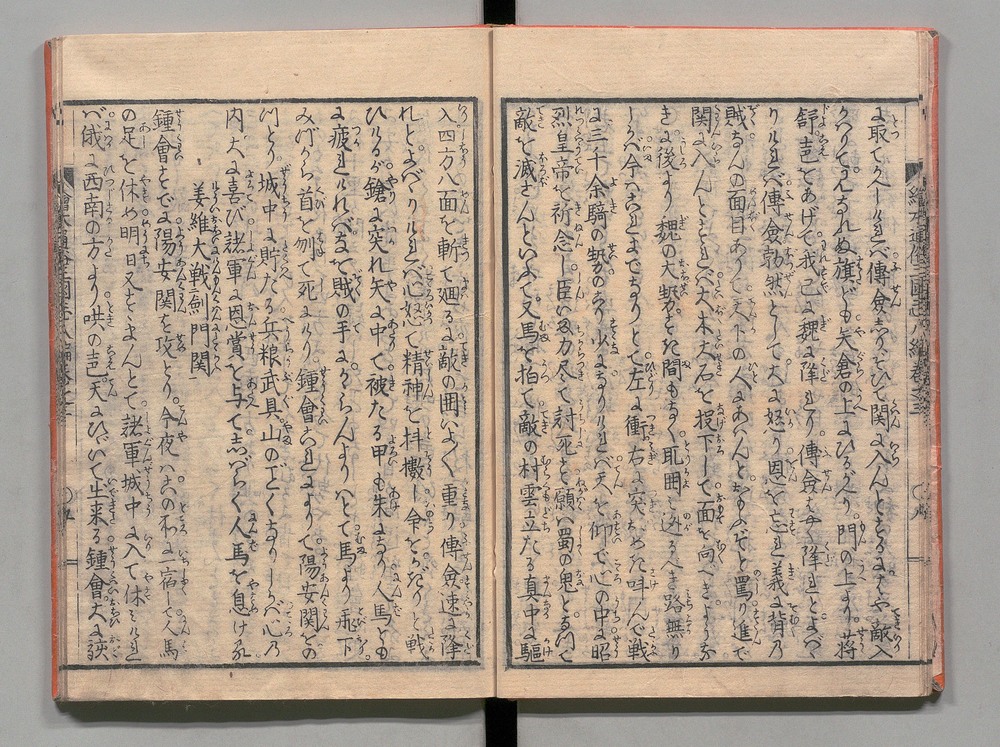 に取てかへしければ傅僉あらそひて関に入んとするにはや敵入
かはりて見なれぬ旗ども矢倉の上にひるがへり門の上より蒋
舒声をあげて我已に魏に降れり傅僉も早く降れとよべ
りければ傅僉勃然として大に怒り恩を忘れ義に背く乃
賊なんの面目ありて天下の人にあはんとするぞと罵り進で
関に入んとすれば大木大石を投下して面を向べきようもな
きに後より魏の大勢ひた間もなく取囲み遁るべき路無り
しかば今はこれまでなりとて左に衝右に突おめき叫んで戦
に三十余騎の勢のこり少になりければ天を仰で心の中に昭
烈皇帝を祈念し臣いま力尽て討死す願くは蜀の鬼となつて
敵を滅さんといふて又馬を拍て敵の村雲立たる真中に駆
入四方八面を斬て廻るに敵の囲いよ〱重り傅僉速に降
れとよべりければ心怒て精神を抖擻し命をかぎりと戦
ひけるが鎗に突れ矢に中て被たる甲も朱になり人馬とも
に疲れければ今は賊の手にかゝらんよりはとて馬より飛下
みづから首を刎て死にけり鍾會これによりて陽安関をの
つとり城中に貯たる兵粮武具山のごとくなりしかば心乃
内大に喜び諸軍に恩賞を与てしばらく人馬を息けり
姜維大戦劍門関
鍾會すでに陽安関を攻とり今夜はこのところに一宿して人馬
の足を休め明日又すゝまんとて諸軍城中に入て休みければ
俄に西南の方より哄の声天にひゞいて生来る鍾會大に驚